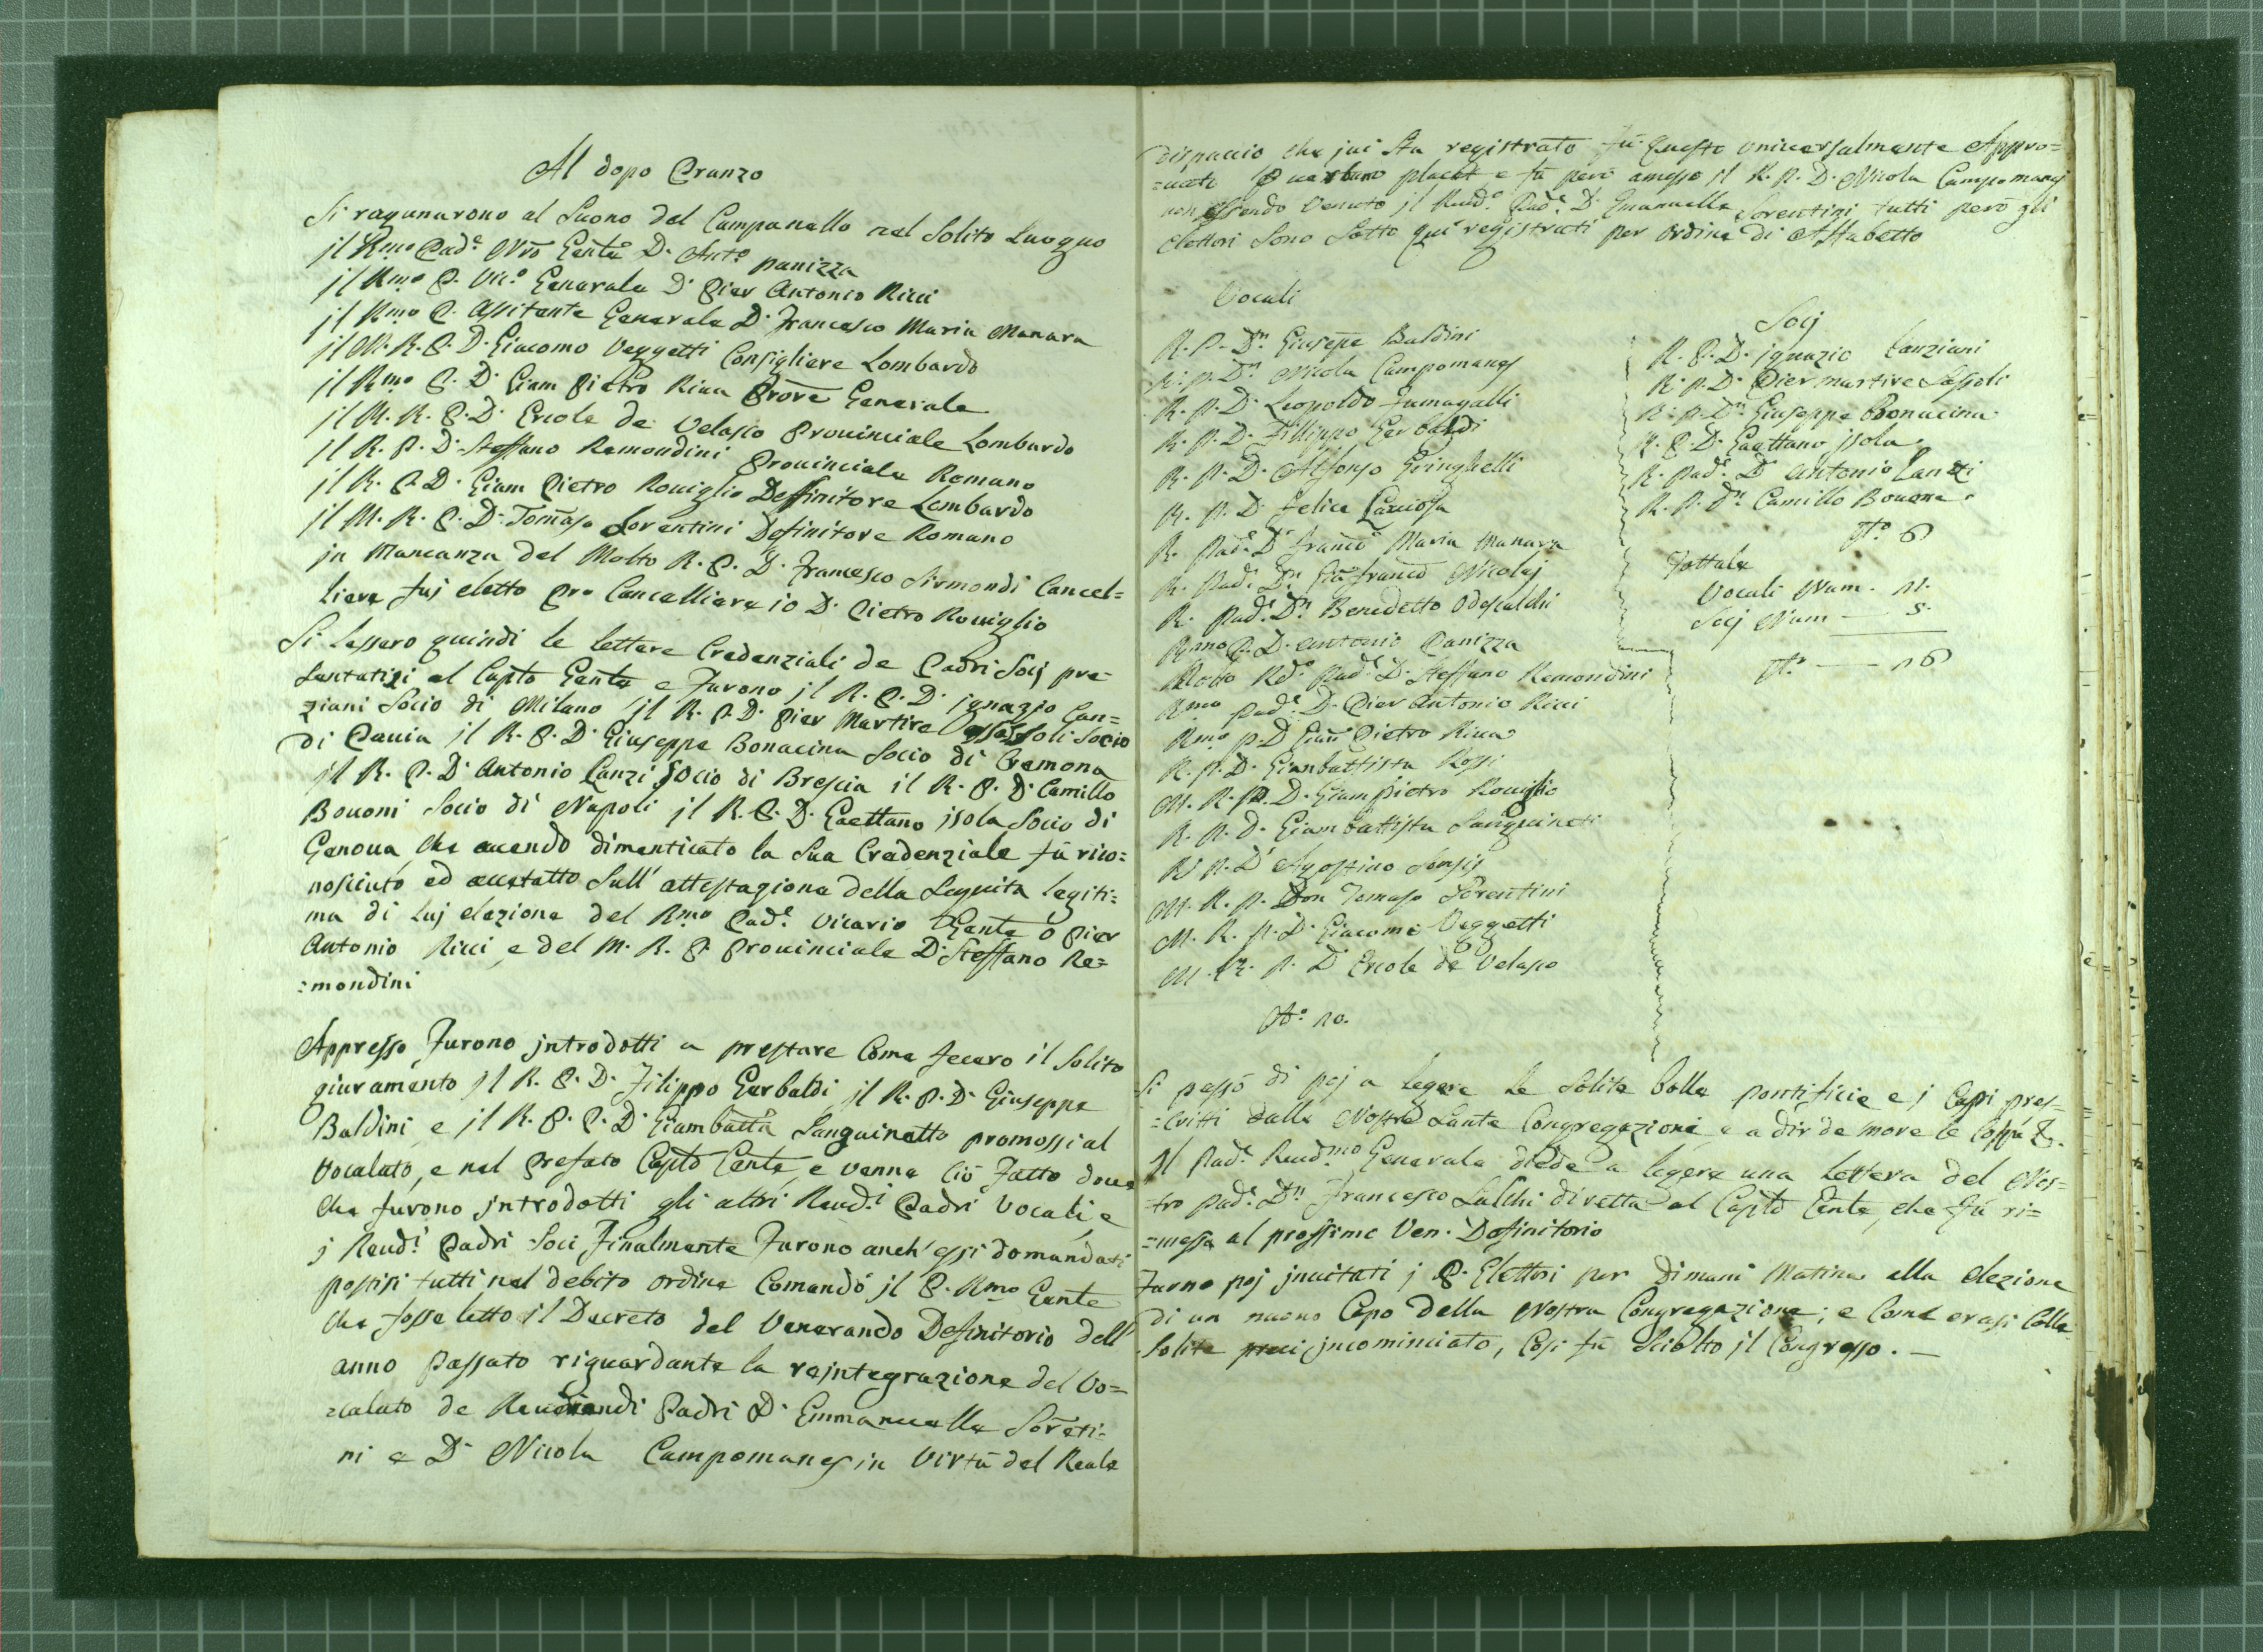 Al dopo Pranzo
Si ragunarono al Suono del Campanello nel Solito Luogho
jl Rmo Pad.e Nrõ Genle D. Ant.o panizza
jl Rmo P. Vic.o Generale D. Pier Antonio Ricci
jl Rmo P. Assitente Generale D. Francesco Maria Manara
jl M. R. P. D. Giacomo Veggetti Consigliere Lombardo
jl Rmo P. D. Giam Pietro Riva Prore Generale
jl M. R. P. D. Ercole de Velasco Provinciale Lombardo
jl R. P. D. Steffano Remondini Provinciale Romano
jl R. P. D. Giam Pietro Roviglio Deffinitore Lombardo
jl M. R. P. D. Tomaso Sorentini Definitore Romano
jn Mancanza del Molto R. P. D. Francesco Sirmondi Cancel=
liere fuj eletto Pro Cancelliere io D. Pietro Roviglio
Si lessero quindi le lettere Credenziali de Padri Socj pre=
sentatisi al Caplo Genle e Furono jl R. P. D. jgnazio Lan=
ziani Socio di Milano jl R. P. D. Pier Martire Sassoli Socio
di Pavia jl R. P. D. Giuseppe Bonacina Socio di Cremona
jl R. P. D. Antonio Lanzi Socio di Brescia il R. P. D. Camillo
Bovoni Socio di Napoli jl R. P. D. Gaettano jsola Socio di
Genova che avendo dimenticato la Sua Credenziale fù rico=
nosciuto ed accetatto Sull' attestazione della Seguita legiti=
ma di luj elezione del Rmo Pad.e Vicario Genle D Pier
Antonio Ricci e del M. R. P. Provinciale D. Steffano Re=
=mondini
Appresso Furono jntrodotti a prestare Come fecero il Solito
giuramento jl R. P. D. Filippo Gerbaldi jl R. P. D. Giuseppe
Baldini e jl R. P. P. D. Giambatta Sanguinetto promossi al
Vocalato, e nel prefato Caplo Genle, e venne Ciò Fatto dove
che furono jntrodotti gli altri Revd.i Padri Vocali e
j Revd.i Padri Soci Finalmente Furono anch' essi domandati
postisi tutti nel debito ordine Comandò jl P. Rmo Genle
che fosse letto il Decreto del Venerando Definitorio dell'
anno Passato riguardante la rejntegrazione del Vo=
=calato de Reverendi Padri D. Emmanuelle Soreti=
ni e D. Nicola Campomanes in Virtù del Reale
dispaccio che jui sta registrato fù Questo universalmente Appro=
=vato P verbum placet e fù però amesso jl R. P. D. Nicola Campomanes
non essendo Venuto jl Revd.o Pad.e D. Emanuelle Sorentini tutti però gli
elettori Sono Sotto quì registrati per ordine di Alfabetto
Vocali
R. P. Dn Giusepe Baldini
R. P. Dn Nicola Campomanes
R. P. D. Leopoldo Fumagalli
R. P. D. Fillippo Gerbaldi
R. P. D. Alfonso Gringhelli
R. P. D. Felice Laviosa
R. Pad.e D. Franco Maria Manara
R. Pad.e Dn Gia Franco Nicolaj
R. Pad.e Dn Benedetto Odescalchi
Rmo P. D. Antonio Panizza
Molto Rd.o Pad.e D. Steffano Remondini
Rmo Pad.e D. Pier Antonio Ricci
Rmo P. D. Giam Pietro Riva
R. P. D. Gianbattista Rossi
M. R. P. D. Giampietro Roviglio
R. P. D. Giambattista Sanguineti
R. P. D. Agostino Sensis
M. R. P. Don Tomaso Sorentini
M. R. P. D. Giacomo Veggetti
M. R. P. D. Ercole de Velasco
Socj
R. P. D. jgnazio Lanziani
R. P. D. Pier martire Sassoli
R. P. Dn Giuseppe Bonacina
R. P. D. Gaettano jsola
R. Pad.e D. Antonio Lanzi
R. P. Dn Camillo Bovone
No 6
Tottale
Vocali Num.
Socj Num
Si passò di poj a legere le Solite bolle pontificie e j Capi pres=
=critti dalle Nostre Sante Congregazioni e a dir de more le
Jl Pad.e Revd.mo Generale diede a legere una lettera del Nos=
=tro Pad.e Dn Francesco diretta al Caplo Genle, che fù ri=
=messa al prossimo Ven. Definitorio
Furno poj jnvitati j P. Elettori per Dimani Matina alla elezione
di un nuovo Capo della Nostra Congregazione; e Come erasi Colle
Solite preci jncominciato, Cosi fù Sciolto jl Congresso. —